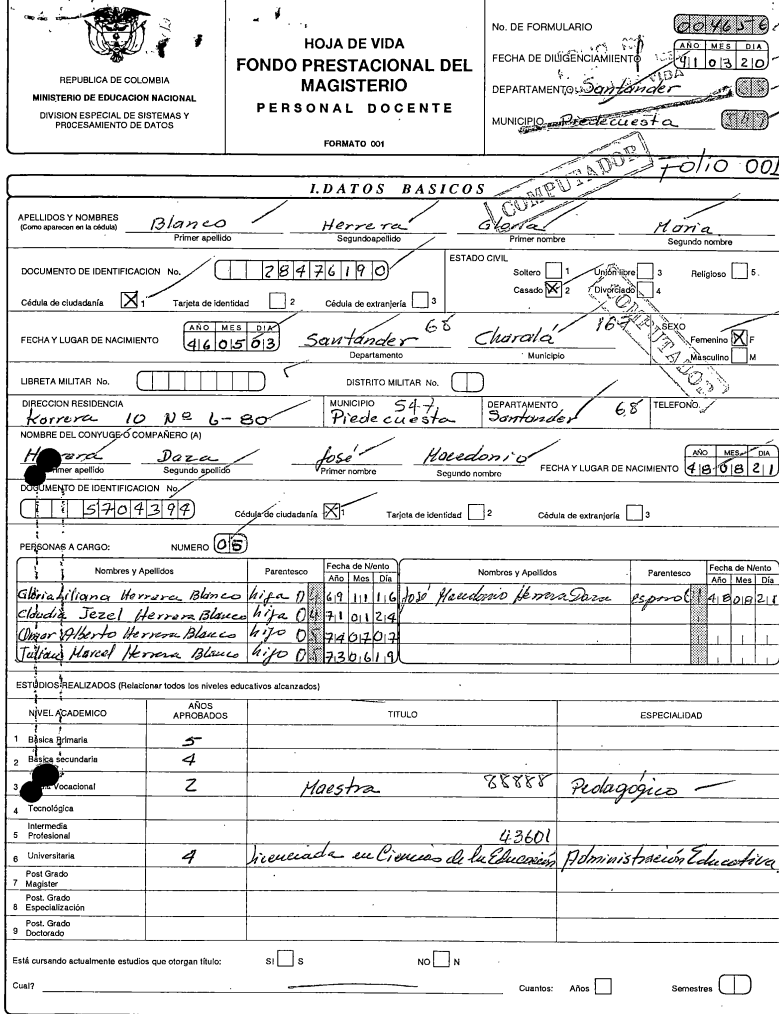 REPUBLICA DE COLOMBIA
MINISTERIO DE EDUCACION NACIONAL
DIVISION ESPECIAL DE SISTEMAS Y
PROCESAMIENTO DE DATOS
HOJA DE VIDA
FONDO PRESTACIONAL DEL
MAGISTERIO
PERSONAL DOCENTE
FORMATO 001
No. DE FORMULARIO 004656
AÑO MES DIA
FECHA DE DILIGENCIAMIENTO 91 03 20
DEPARTAMENTO Santander
MUNICIPIO Piedecuesta
COMPUTADOR
Folio 001
I. DATOS BASICOS
APELLIDOS Y NOMBRES Blanco Herrera Gloria María
(Como aparecen en la cédula) Primer apellido Segundo apellido Primer nombre Segundo nombre
DOCUMENTO DE IDENTIFICACION No. 28476190
ESTADO CIVIL
Soltero 1 Unión libre 3 Religioso 5.
Casado X 2 Divorciado 4
Cédula de ciudadanía X 1 Tarjeta de identidad 2 Cédula de extranjería 3
COMPUTADOR
AÑO MES DIA
FECHA Y LUGAR DE NACIMIENTO 46 05 03 Santander 68 Charalá 167
Departamento Municipio
SEXO
Femenino X F
Masculino M
LIBRETA MILITAR No. DISTRITO MILITAR No.
DIRECCION RESIDENCIA MUNICIPIO 547 DEPARTAMENTO TELEFONO.
Karrera 10 Nº 6-80 Piedecuesta Santander 68
NOMBRE DEL CONYUGE O COMPAÑERO (A)
Herrera Daza José Macedonio
Primer apellido Segundo apellido Primer nombre Segundo nombre
AÑO MES DIA
FECHA Y LUGAR DE NACIMIENTO 48 08 21
DOCUMENTO DE IDENTIFICACION No.
5704394 Cédula de ciudadanía X 1 Tarjeta de identidad 2 Cédula de extranjería 3
PERSONAS A CARGO: NUMERO 05
Nombres y Apellidos Parentesco Fecha de N/ento Año Mes Día Nombres y Apellidos Parentesco Fecha de N/ento Año Mes Día
Gloria Liliana Herrera Blanco hija 04 69 11 16 José Macedonio Herrera Daza esposo 48 08 21
Claudia Jezel Herrera Blanco hija 04 71 01 24
Omar Alberto Herrera Blanco hijo 05 74 07 07
Julian Marcel Herrera Blanco hijo 05 73 06 19
ESTUDIOS REALIZADOS (Relacionar todos los niveles educativos alcanzados)
NIVEL ACADEMICO AÑOS APROBADOS TITULO ESPECIALIDAD
1 Básica Primaria 5
2 Básica secundaria 4
3 Vocacional 2 Maestra 88888 Pedagógico
4 Tecnológica
5 Intermedia Profesional
43601
6 Universitaria 4 Licenciada en Ciencias de la Educación Administración Educativa
7 Post Grado Magister
8 Post. Grado Especialización
9 Post. Grado Doctorado
Está cursando actualmente estudios que otorgan título: SI S NO N
Cual? Cuantos: Años Semestres